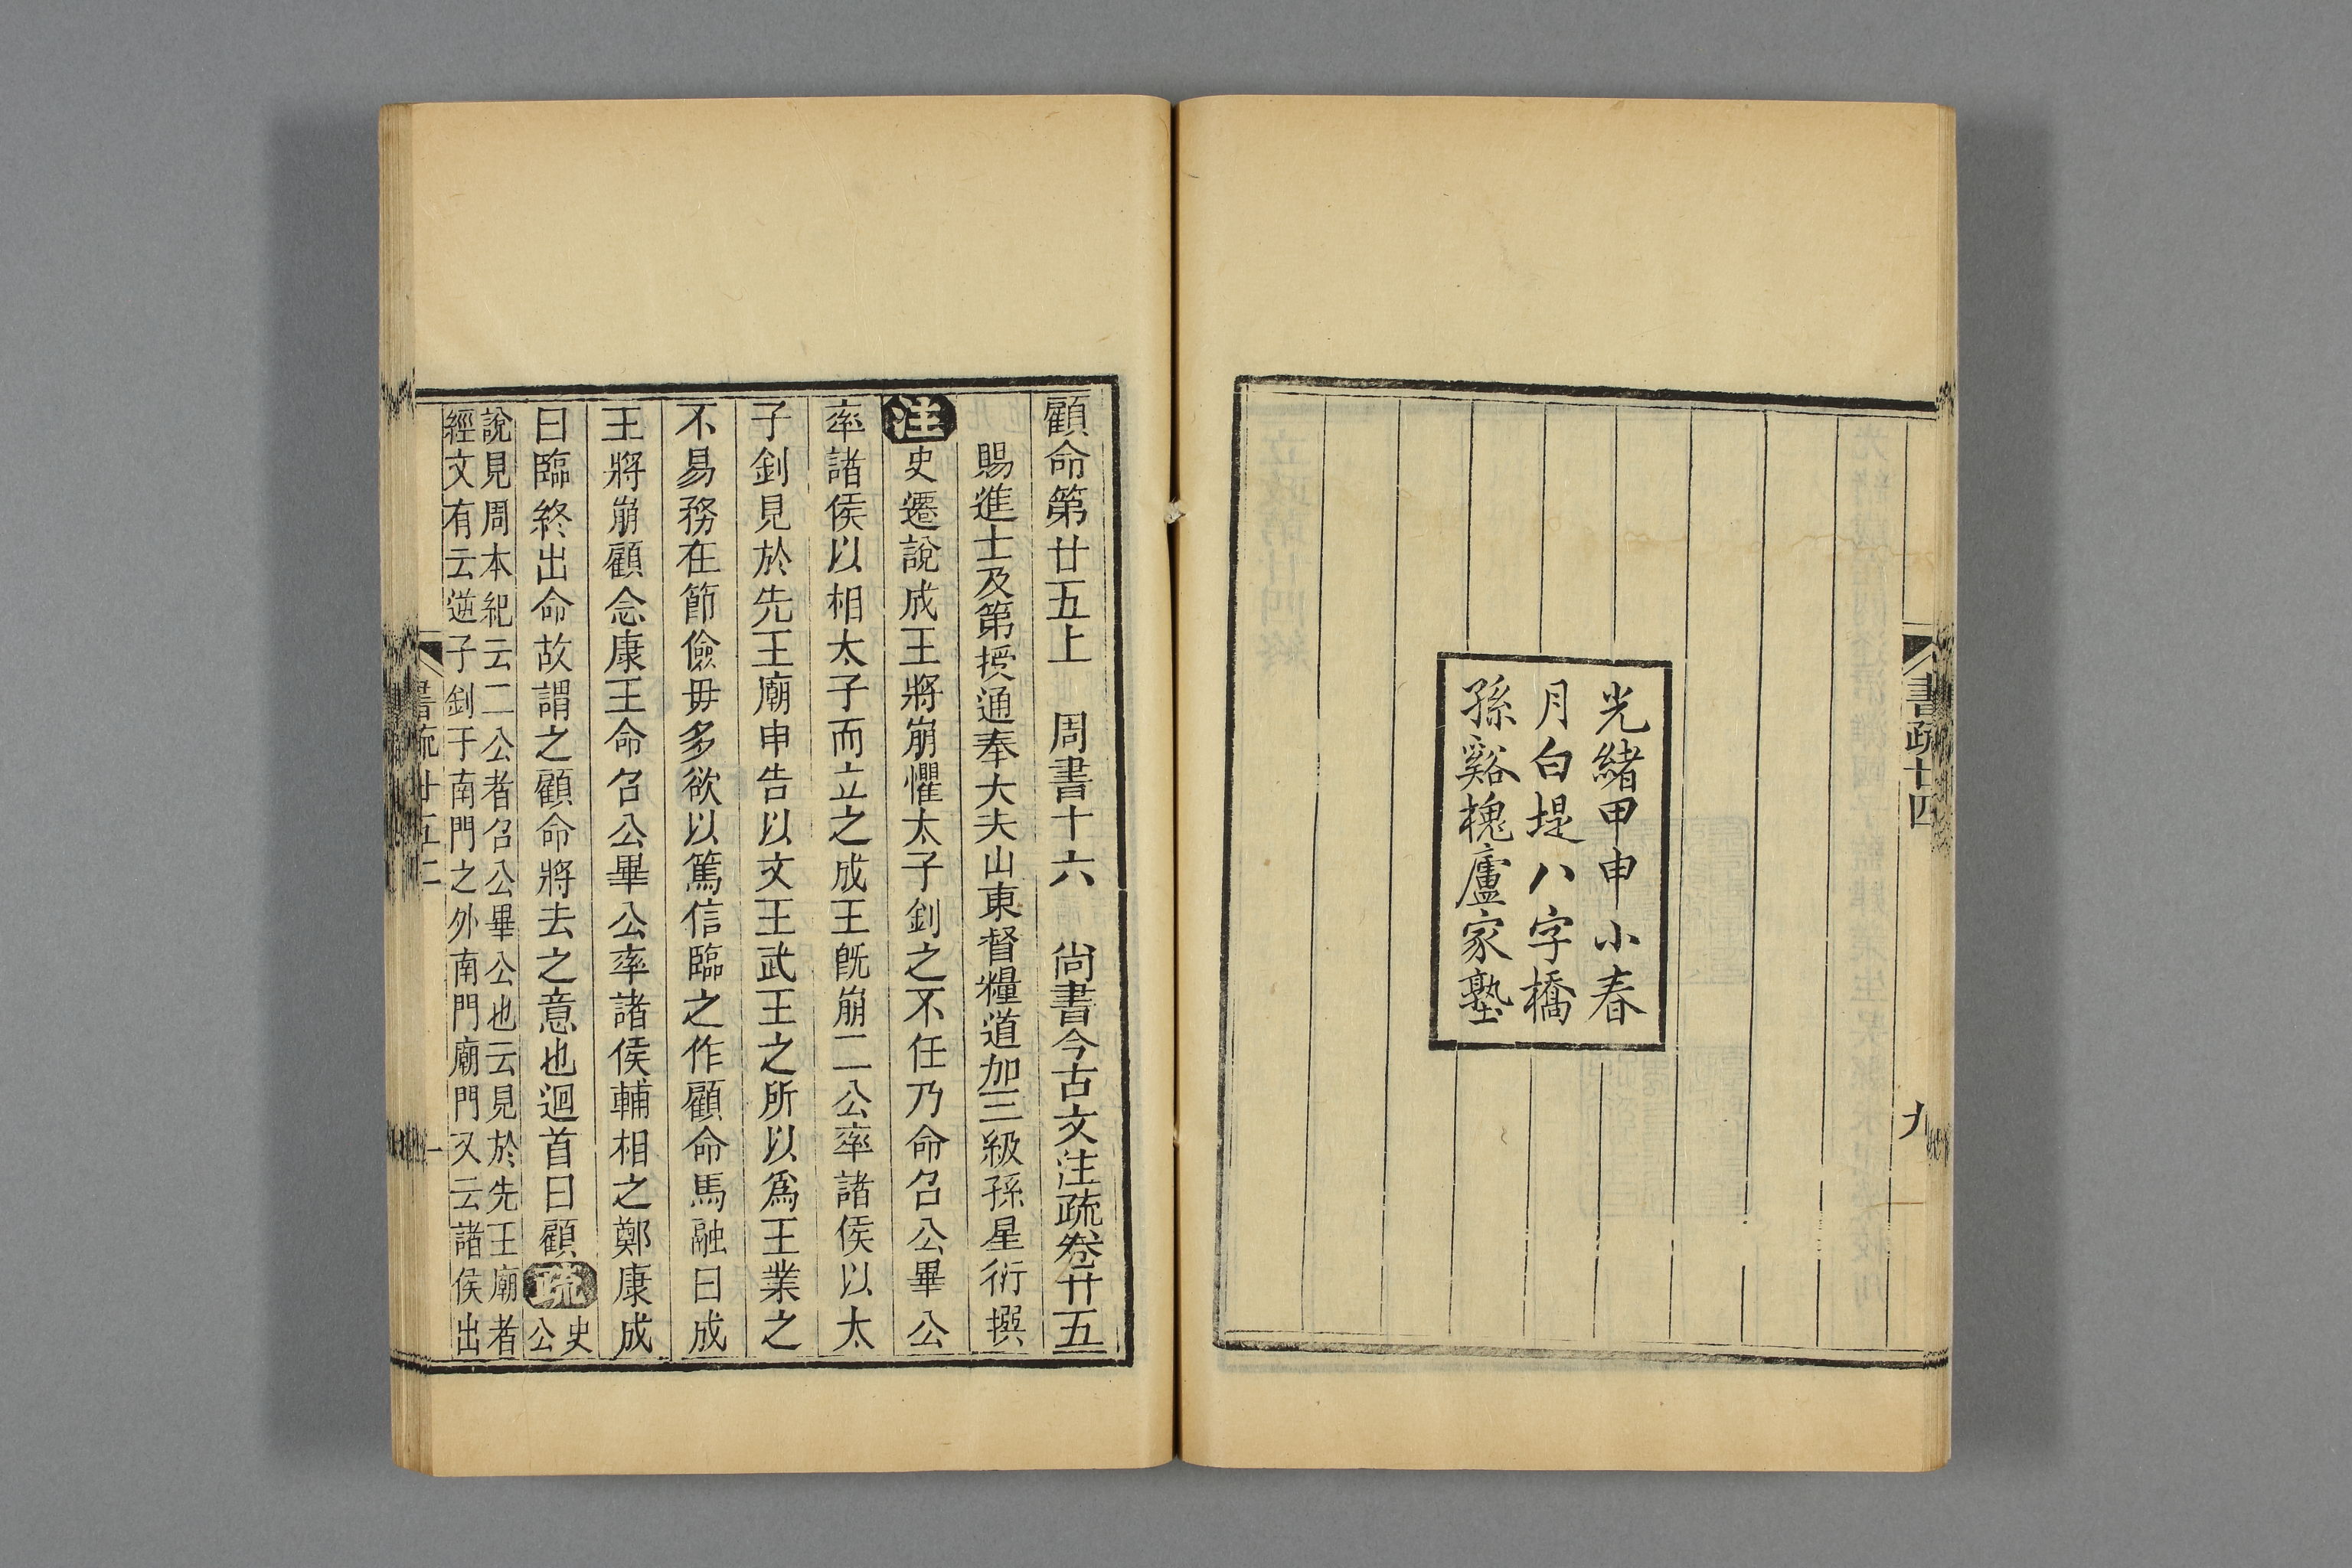 書疏廿四
九
光緒甲申小春
月白堤八字橋
孫谿槐廬家塾
顧命第廿五上　周書十六　尚書今古文注疏卷廿五
賜進士及第授通奉大夫山東督糧道加三級孫星衍撰
注史遷說成王將崩懼太子釗之不任乃命召公畢公
率諸侯以相太子而立之成王旣崩二公率諸侯以太
子釗見於先王廟申告以文王武王之所以爲王業之
不易務在節儉毋多欲以篤信臨之作顧命馬融曰成
王將崩顧命康王命召公畢公率諸侯輔相之鄭康成
曰臨終出命故謂之顧命將去之意也迴首曰顧疏史公
說見周本紀云二公者召公畢公也云見於先王廟者
經文有云逆子釗于南門之外南門廟門又云諸侯出
書疏廿五上
一